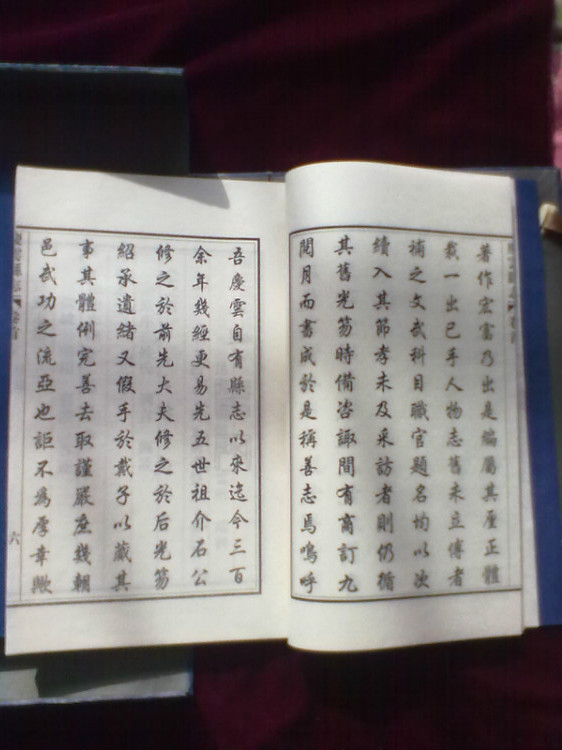 慶雲縣志 卷首
著作宏富乃出是編屬其厘正體
裁一出已手人物志舊未立傳者
補之文武科目職官題名均以次
續入其節孝未及采訪者則仍循
其舊光笏時備咨諏間有商訂九
閱月而書成於是稱善志焉嗚呼
吾慶雲自有縣志以來迄今三百
余年幾經更易先五世祖介石公
修之於前先大夫修之於后光笏
紹承遺緒又假手於戴子以蕆其
事其體例完善去取謹嚴庶幾朝
邑武功之流亞也詎不為厚幸歟
慶雲縣志 卷首
六